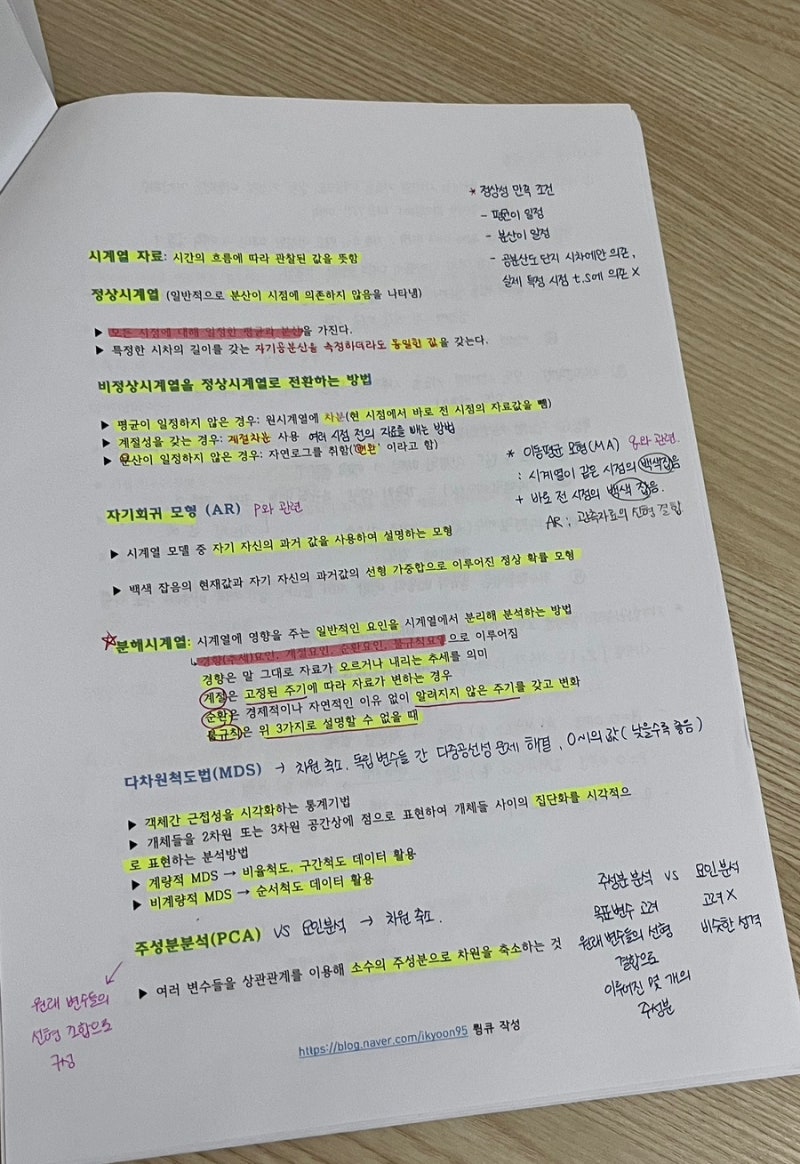 * 정상성 만족 조건
- 평균이 일정
- 분산이 일정
- 공분산도 단지 시차에만 의존,
실제 특정 시점 t, s에 의존 X
시계열 자료: 시간의 흐름에 따라 관찰된 값을 뜻함
정상시계열 (일반적으로 분산이 시점에 의존하지 않음을 나타냄)
▶ 모든 시점에 대해 일정한 평균과 분산을 가진다.
▶ 특정한 시차의 길이를 갖는 자기공분산을 측정하더라도 동일한 값을 갖는다.
비정상시계열을 정상시계열로 전환하는 방법
▶ 평균이 일정하지 않은 경우: 원시계열에 차분(현 시점에서 바로 전 시점의 자료값을 뺌)
▶ 계절성을 갖는 경우: 계절차분 사용 여러 시점 전의 자료를 빼는 방법
▶ 분산이 일정하지 않은 경우: 자연로그를 취함('변환' 이라고 함)
* 이동평균 모형(MA) q와 관련.
: 시계열이 같은 시점의 백색잡음
+ 바로 전 시점의 백색 잡음.
AR : 관측자료의 선형 결합
자기회귀 모형 (AR) P와 관련
▶ 시계열 모델 중 자기 자신의 과거 값을 사용하여 설명하는 모형
▶ 백색 잡음의 현재값과 자기 자신의 과거값의 선형 가중합으로 이루어진 정상 확률 모형
☆분해시계열: 시계열에 영향을 주는 일반적인 요인을 시계열에서 분리해 분석하는 방법
↳ 경향(추세)요인, 계절요인, 순환요인, 불규칙요인으로 이루어짐
경향은 말 그대로 자료가 오르거나 내리는 추세를 의미
계절은 고정된 주기에 따라 자료가 변하는 경우
순환은 경제적이나 자연적인 이유 없이 알려지지 않은 주기를 갖고 변화
불규칙은 위 3가지로 설명할 수 없을 때
다차원척도법(MDS) → 차원 축소, 독립변수들 간 다중공선성 문제 해결, 0~1의 값 (낮을수록 좋음)
▶ 객체간 근접성을 시각화하는 통계기법
▶ 개체들을 2차원 또는 3차원 공간상에 점으로 표현하여 개체들 사이의 집단화를 시각적으
로 표현하는 분석방법
▶ 계량적 MDS → 비율척도, 구간척도 데이터 활용
▶ 비계량적 MDS → 순서척도 데이터 활용
주성분분석(PCA) VS 요인분석 → 차원 축소.
▶ 여러 변수들을 상관관계를 이용해 소수의 주성분으로 차원을 축소하는 것
주성분 분석 VS 요인 분석
목표변수 고려 고려 X
원래 변수들의 선형 비슷한 성격
결합으로
이루어진 몇 개의
주성분
원래 변수들의
선형 결합으로
구성
https://blog.naver.com/ikyoon95 륑큐 작성